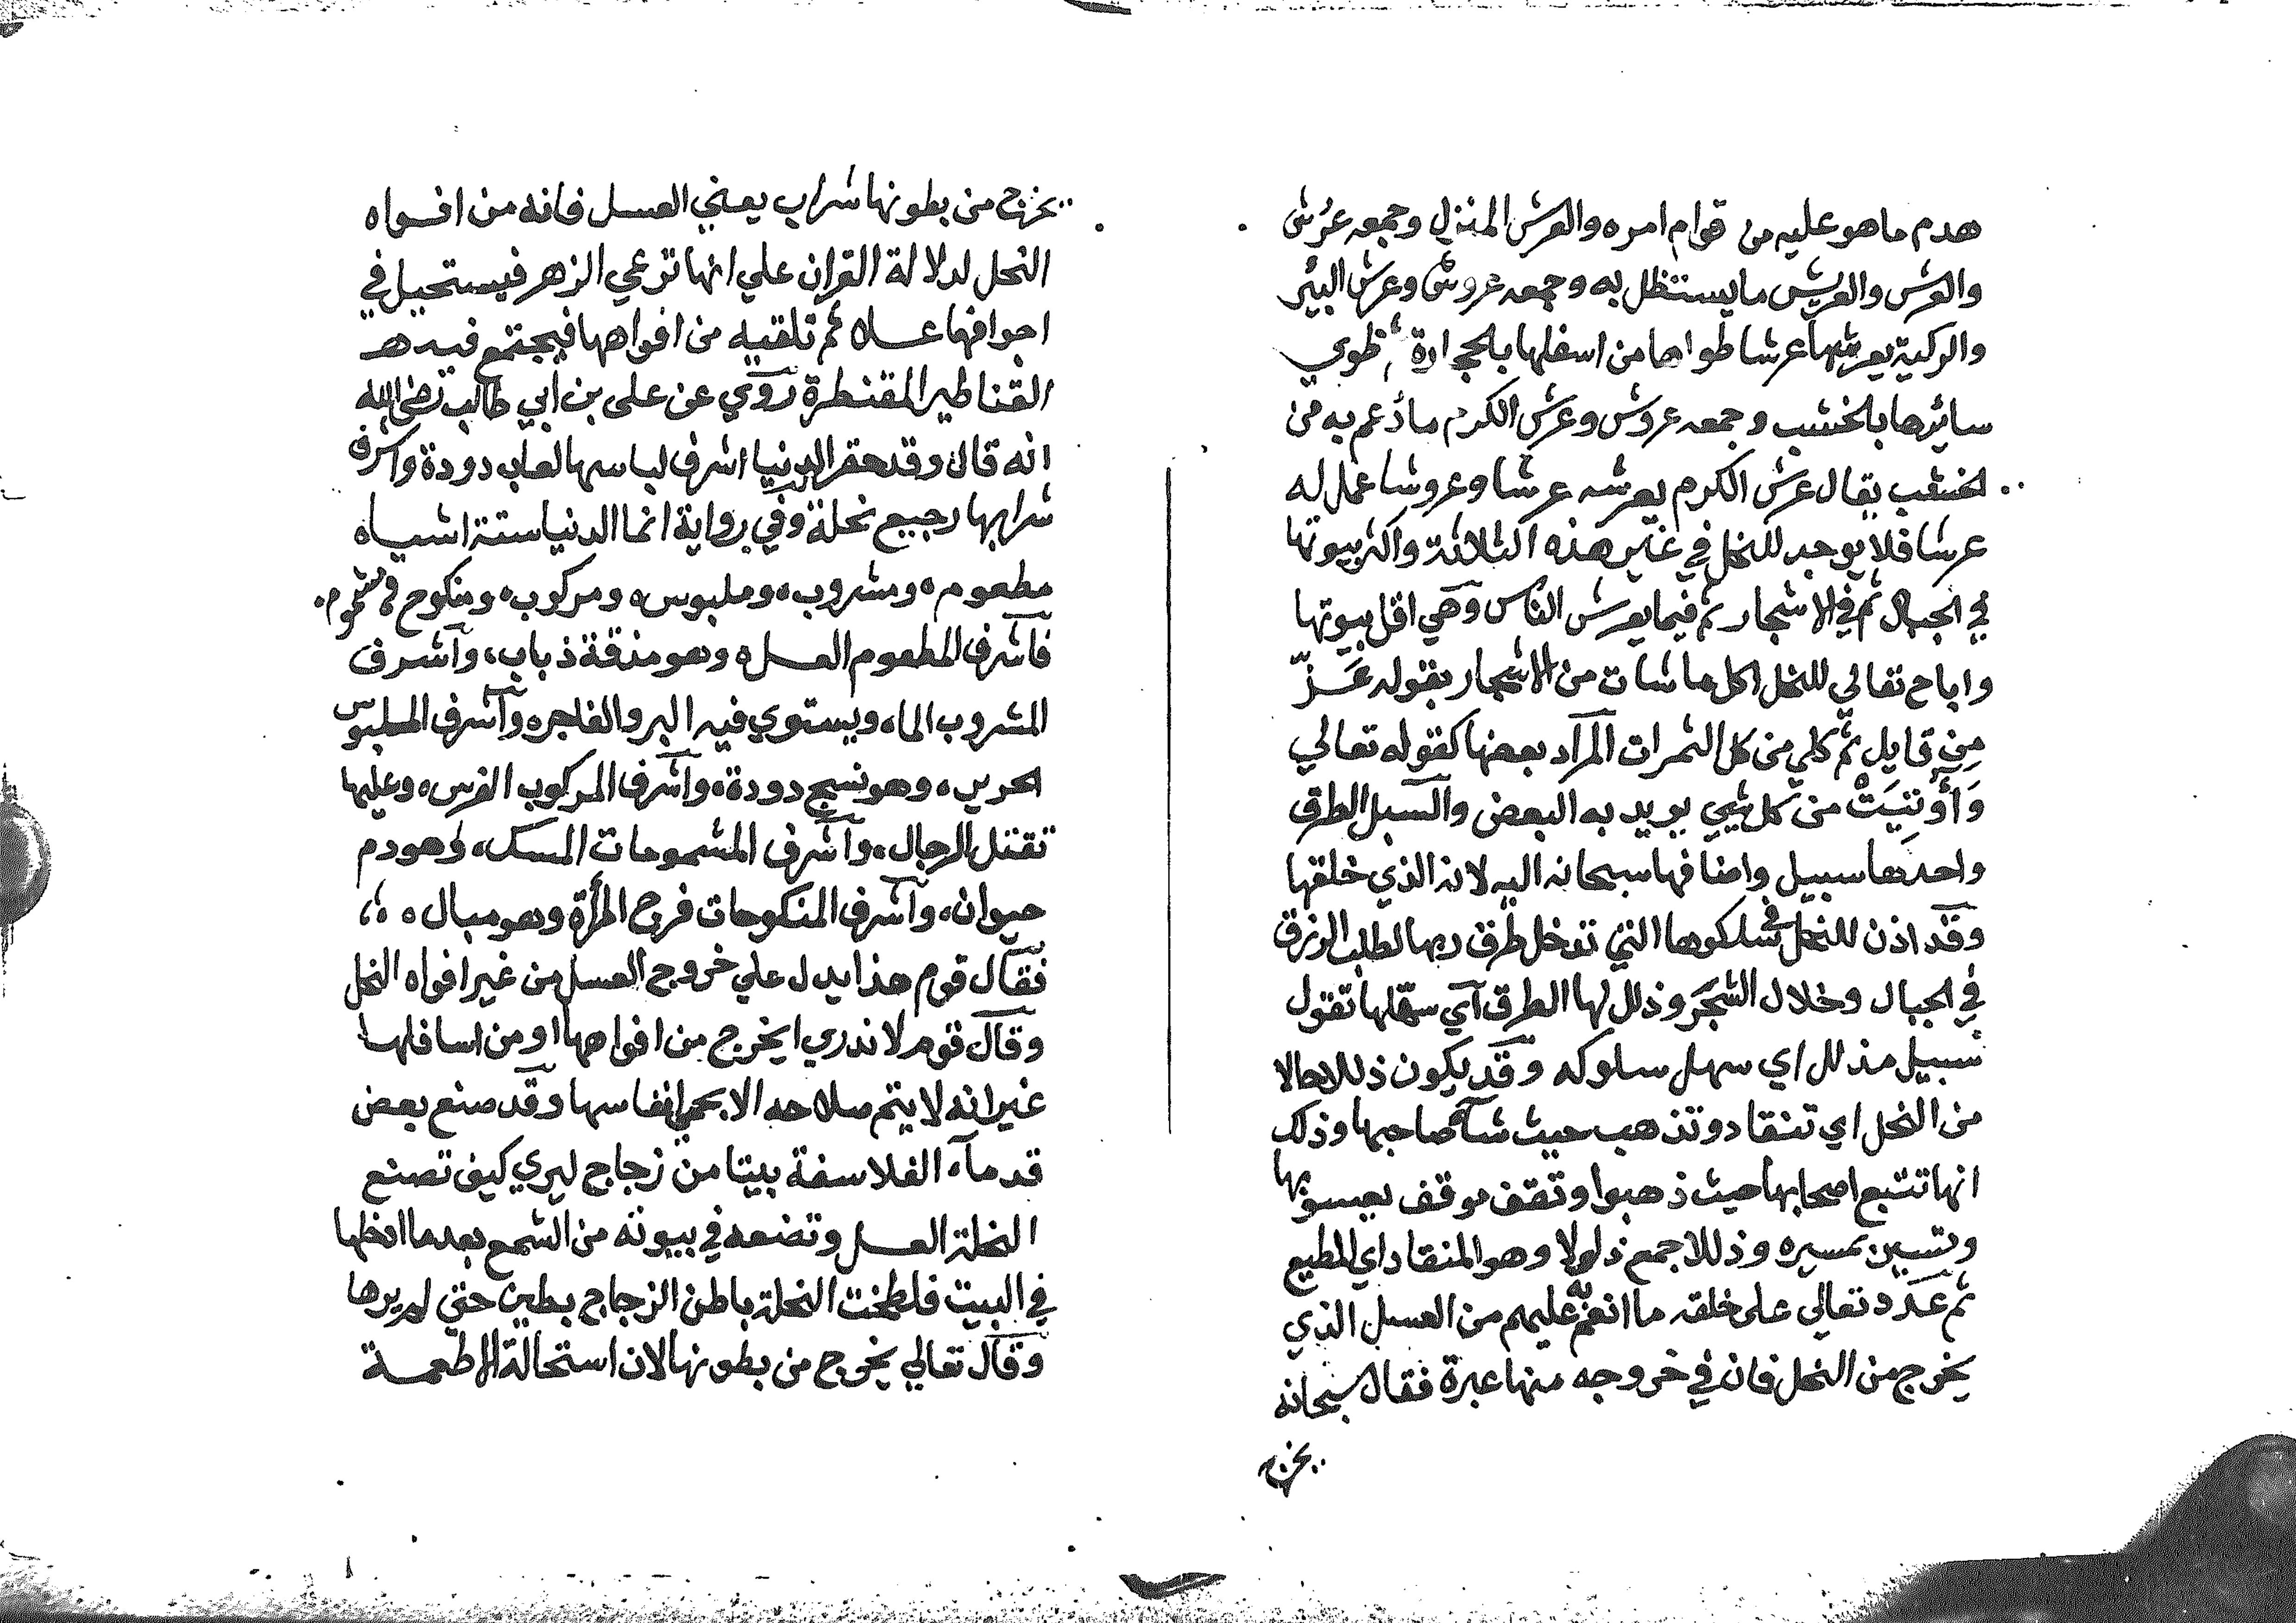 هدم ما هو عليه من قوام امره والعرش المنزل وجمعه عُرُش
والعرش والعريش ما يستظل به وجمعه عروش وعرش البئر
والركية يعرشها عرشا طواها من اسفلها بالحجارة ثم طوي
سائرها بالخشب وجمعه عروش وعرش الكرم ما دُعم به من
الخشب يقال عرش الكرم يعرشه عرشا وعروشا عمل له
عرشا فلا يوجد للنحل في غير هذه الثلاثة واكثر بيوتها
في الجبال ثم في الاشجار ثم فيما يعرش الناس وهي اقل بيوتها
واباح تعالي للنحل اكل ما شات من الاشجار بقوله عَزّ
مِن قايل ثم كلي من كل الثمرات المراد بعضها كقوله تعالي
وَأُوتِيَتْ من كل شيي يريد به البعض والسبل الطرق
واحدها سبيل واضافها سبحانه اليه لانه الذي خلقها
وقد اذن للنحل في سلكوها التي تدخل طرق ربها لطلب الرزق
في الجبال وخلال الشجر وذلل لها الطرق اي سهّلها تقول
سبيل مذلل اي سهل سلوكه وقد يكون ذللا حالا
من النحل اي تنقاد وتذهب حيث شآ صاحبها وذلك
انها تتبع اصحابها حيث ذهبوا وتقف موقف يعسوبها
وتسير بمسيره وذللا جمع ذلولا وهو المنقاد اي المطيع
ثم عدد تعالي على خلقه ما انعم به عليهم من العسل الذي
يخرج من النحل فان في خروجه منها عبرة فقال سبحانه
يخرج
يخرج من بطونها شراب يعني العسل فانه من افواه
النحل لدلالة القران علي انها ترعي الزهر فيستحيل في
اجوافها عسلا ثم تلقيه من افواهها فيجتمع فيه
القناطير المقنطرة روي عن على بن ابي طالب رضي الله
انه قال وقد حقر الدنيا اشرف لباسها لعاب دودة واشرف
شرابها رجيع نحلة وفي رواية انما الدنيا ستة اشياه
مطعوم، ومشروب، وملبوس، ومركوب، ومنكوح ومشموم.
فاشرف المطعوم العسل، وهو مذقة ذباب، واشرف
المشروب الما، ويستوي فيه البر والفاجر، واشرف الملبوس
الحرير، وهو نسيج دودة، واشرف المركوب الفرس، وعليها
تقتل الرجال، واشرف المشمومات المسك، وهو دم
حيوان، واشرف المنكوحات فرج المرأة وهو مبال،
فقال قوم هذا يدل علي خروج العسل من غير افواه النحل
وقال قوم لا ندري ايخرج من افواهها او من اسافلها
غير انه لا يتم صلاحه الا بحمي انفاسها وقد صنع بعض
قدمآء الفلاسفة بيتا من زجاج ليري كيف تصنع
النحلة العسل وتضعه في بيوته من الشمع بعدما ادخلها
في البيت فلطخت النحلة باطن الزجاج بطين حتي لم يرها
وقال تعالي يخرج من بطونها لان استحالة الاطعمة